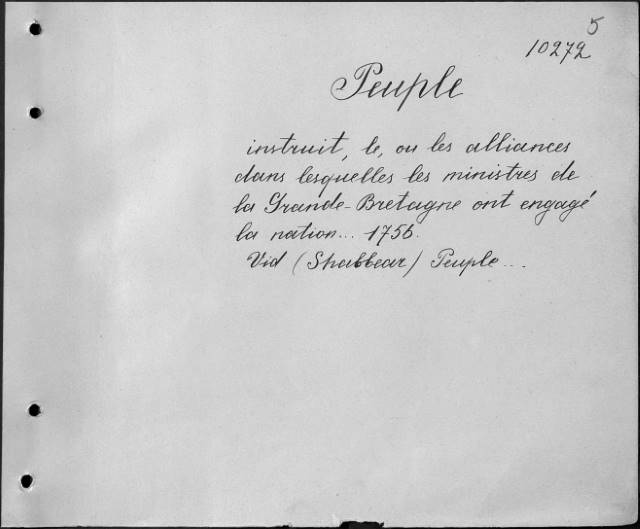 5
10272
Peuple
instruit, le, ou les alliances
dans lesquelles les ministres de
la Grande-Bretagne ont engagé
la nation... 1756.
Vid (Shabbear) Peuple...